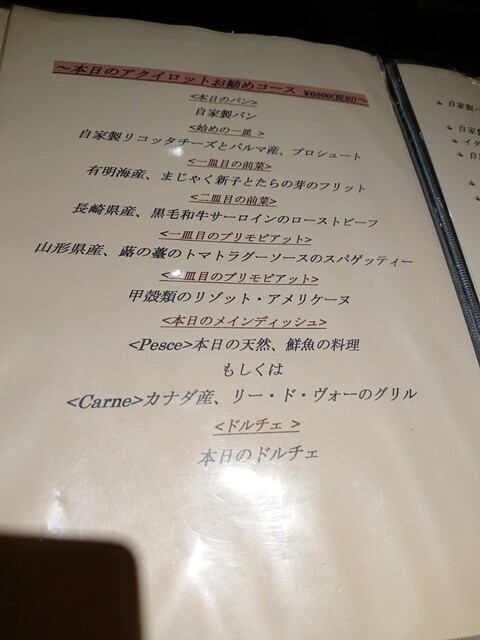 ～本日のアクイロットお勧めコース ¥6800(税別)～
<本日のパン>
自家製パン
<始めの一皿 >
自家製リコッタチーズとパルマ産、プロシュート
<一皿目の前菜>
有明海産、まじゃく新子とたらの芽のフリット
<二皿目の前菜>
長崎県産、黒毛和牛サーロインのローストビーフ
<一皿目のプリモピアット>
山形県産、蕗の薹のトマトラグーソースのスパゲッティー
<二皿目のプリモピアット>
甲殻類のリゾット・アメリケーヌ
<本日のメインディッシュ>
<Pesce>本日の天然、鮮魚の料理
もしくは
<Carne>カナダ産、リー・ド・ヴォーのグリル
<ドルチェ >
本日のドルチェ
自家製
自家製
イタ
自